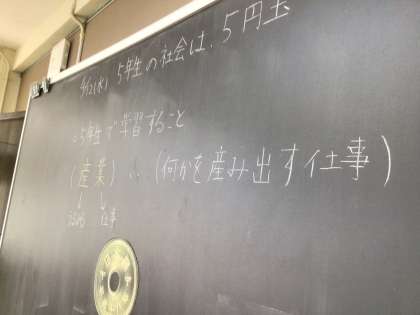 4/12(水) 5年生の社会は、5円玉
○5年生で学習すること
(産業)…(何かを産み出す仕事)
うみ出す 仕事